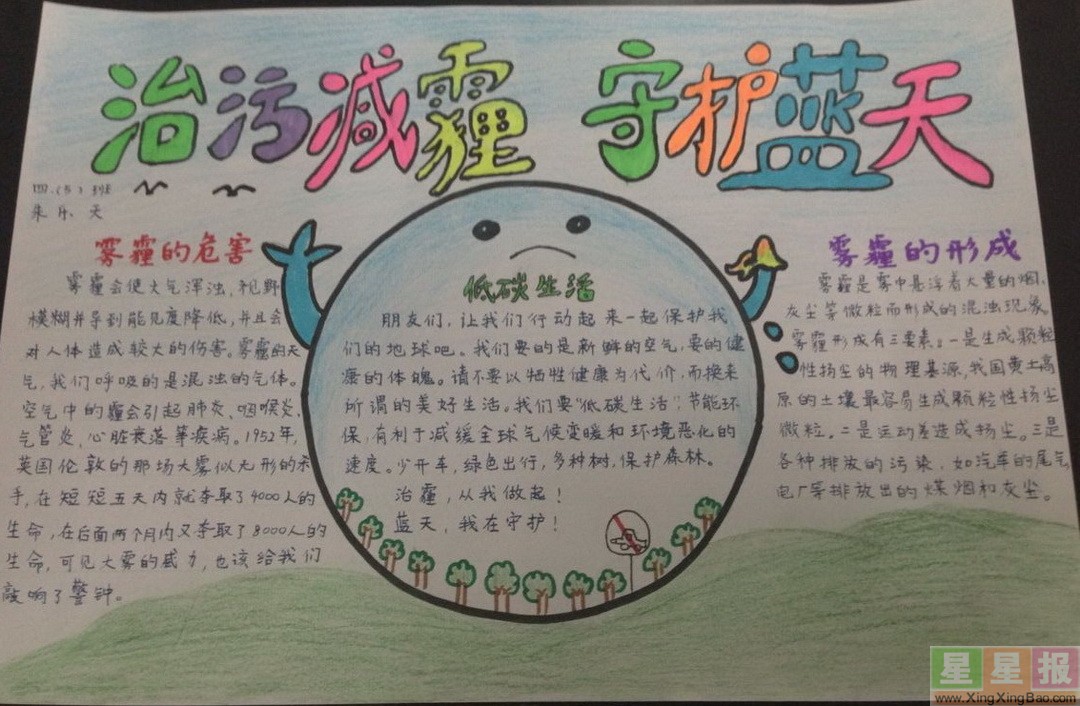 治污减霾 守护蓝天
四.(5)班
朱乐天
雾霾的危害
雾霾会使大气浑浊,视野
模糊并导到能见度降低,并且会
对人体造成较大的伤害。雾霾的天
气,我们呼吸的是混浊的气体。
空气中的霾会引起肺炎、咽喉炎、
气管炎、心脏衰落等疾病。1952年,
英国伦敦的那场大雾似无形的杀
手,在短短五天内就夺取了4000人的
生命,在后面两个月内又夺取了8000人的
生命,可见大雾的威力,也该给我们
敲响了警钟。
低碳生活
朋友们,让我们行动起来一起保护我
们的地球吧。我们要的是新鲜的空气,要的健
康的体魄。请不要以牺牲健康为代价,而换来
所谓的美好生活。我们要“低碳生活”,节能环
保,有利于减缓全球气候变暖和环境恶化的
速度。少开车,绿色出行,多种树,保护森林。
治霾,从我做起!
蓝天,我在守护!
雾霾的形成
雾霾是雾中悬浮着大量的烟、
灰尘等微粒而形成的混浊现象。
雾霾形成有三要素:一是生成颗粒
性扬尘的物理基源,我国黄土高
原的土壤最容易生成颗粒性扬尘
微粒。二是运动差造成扬尘。三是
各种排放的污染,如汽车的尾气
电厂等排放出的煤烟和灰尘。
星星报
www.XingXingBao.com